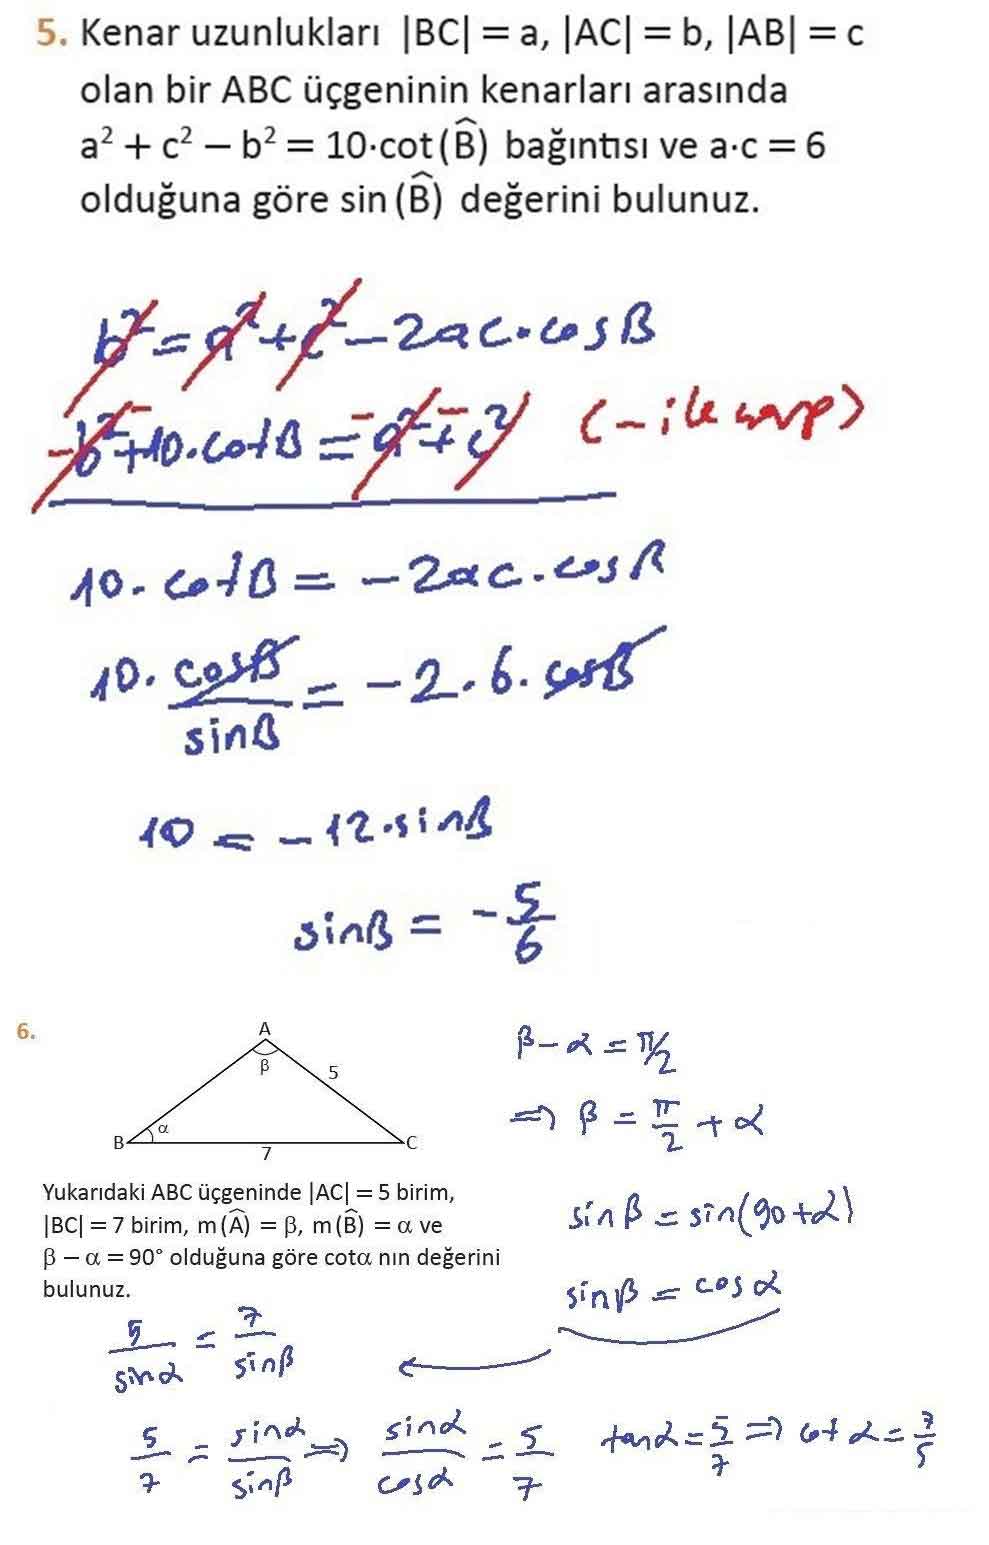 5. Kenar uzunlukları |BC| = a, |AC| = b, |AB| = c
olan bir ABC üçgeninin kenarları arasında
a² + c² − b² = 10·cot(B̂) bağıntısı ve a·c = 6
olduğuna göre sin(B̂) değerini bulunuz.
b² = a² + c² − 2ac·cosB
−b² + 10·cotB = −a² + −c² (− ile çarp)
10·cotB = −2ac·cosB
10· cosB/sinB = −2·6·cosB
10 = −12·sinB
sinB = −5/6
6.
A
β
5
B
α
C
7
β − α = π/2
⇒ β = π/2 + α
Yukarıdaki ABC üçgeninde |AC| = 5 birim,
|BC| = 7 birim, m(Â) = β, m(B̂) = α ve
β − α = 90° olduğuna göre cotα nın değerini
bulunuz.
sinβ = sin(90+α)
sinβ = cosα
5/sinα = 7/sinβ
5/7 = sinα/sinβ ⇒ sinα/cosα = 5/7 tanα = 5/7 ⇒ cotα = 7/5